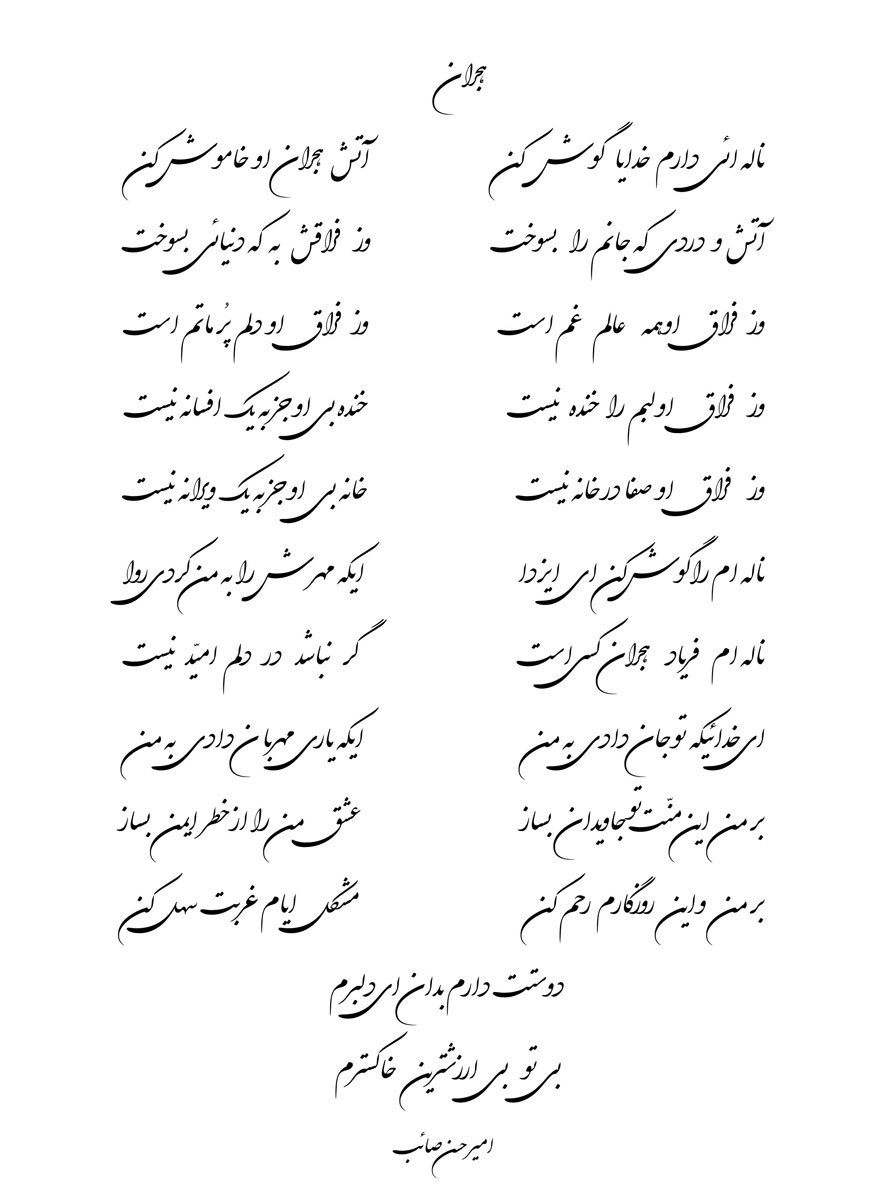 هجران
ناله ائی دارم خدایا گوش کن آتش هجران او خاموش کن
آتش و دردی که جانم را بسوخت وز فراقش به که دنیائی بسوخت
وز فراق او همه عالم غم است وز فراق او دلم پُر ماتم است
وز فراق او لبم را خنده نیست خنده بی او جز به یک افسانه نیست
وز فراق او صفا در خانه نیست خانه بی او جز به یک ویرانه نیست
ناله ام را گوش کن ای ایزدا ایکه مهرش را به من کردی روا
ناله ام فریاد هجران کسی است گر نباشد در دلم امیّد نیست
ای خدائیکه تو جان دادی به من ایکه یاری مهربان دادی به من
بر من این منّت تو جاویدان بساز عشق من را از خطر ایمن بساز
بر من و این روزگارم رحم کن مشکل ایام غربت سهل کن
دوستت دارم بدان ای دلبرم
بی تو بی ارزشترین خاکسترم
امیرحسن صائب